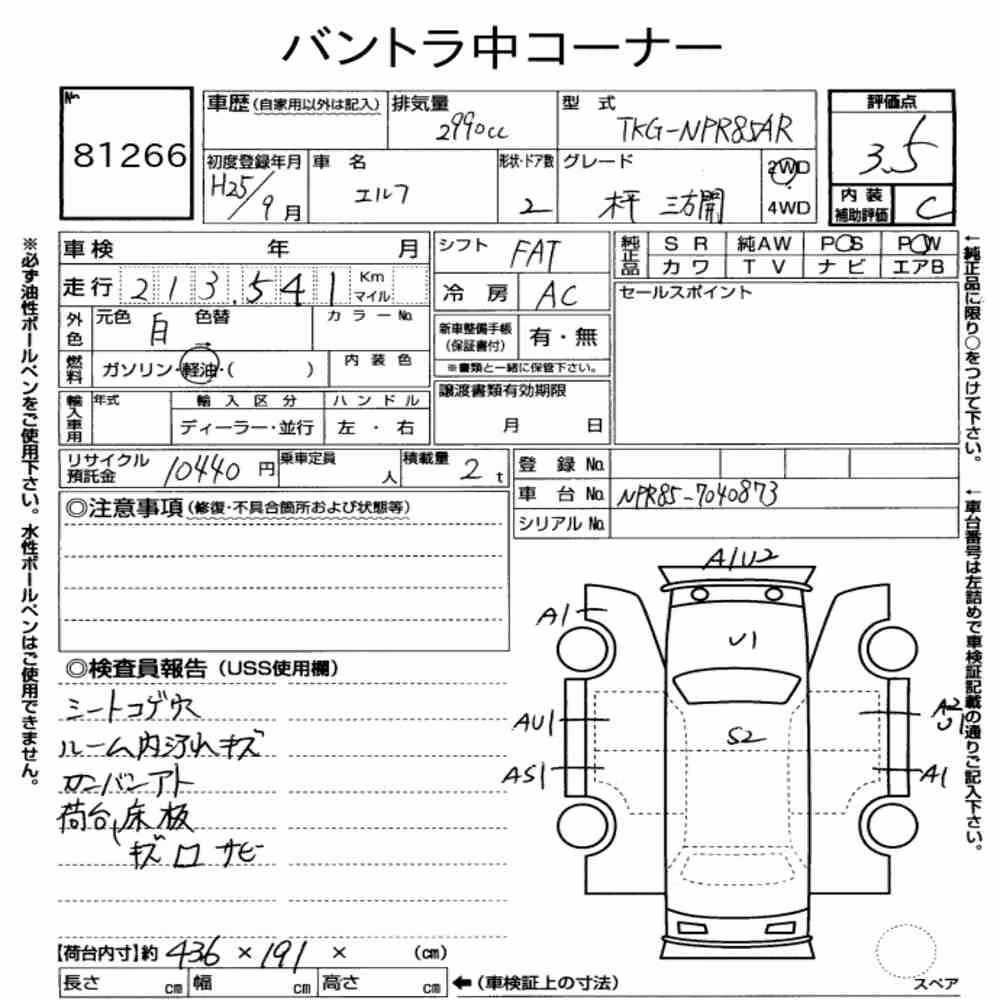 バントラ中コーナー
No.
81266
車歴(自家用以外は記入)
排気量
2990cc
型 式
TKG-NPR85AR
評価点
3.5
初度登録年月
H25/9月
車 名
エルフ
形状・ドア数
2
グレード
三方開
2WD
4WD
内装
補助評価
C
車検 年 月
シフト
FAT
純正品
SR 純AW PS PW
カワ TV ナビ エアB
走行 213,541 Km
マイル
冷 房
AC
セールスポイント
外色
元色 白 色替
→
カラーNo.
新車整備手帳
(保証書付)
有・無
※書類と一緒に保管下さい。
燃料
ガソリン・軽油・( )
内装色
輸入車用
年式
輸入区分
ハンドル
ディーラー・並行
左・右
譲渡書類有効期限
月 日
リサイクル
預託金
10440円
乗車定員
人
積載量
2t
登録No.
車台No.
NPR85-7040873
シリアルNo.
◎注意事項(修復・不具合箇所および状態等)
◎検査員報告(USS使用欄)
シートコゲ穴
ルーム内汚れキズ
カンバンアト
荷台、床板
キズ凹サビ
A1U2
A1
U1
AU1
S2
A2
U1
AS1
A1
【荷台内寸】約 436×191× (cm)
長さ cm 幅 cm 高さ cm
←(車検証上の寸法)
スペア
※必ず油性ボールペンをご使用下さい。水性ボールペンはご使用できません。
←純正品に限り○をつけて下さい。
←車台番号は左詰めで車検証記載の通りご記入下さい。